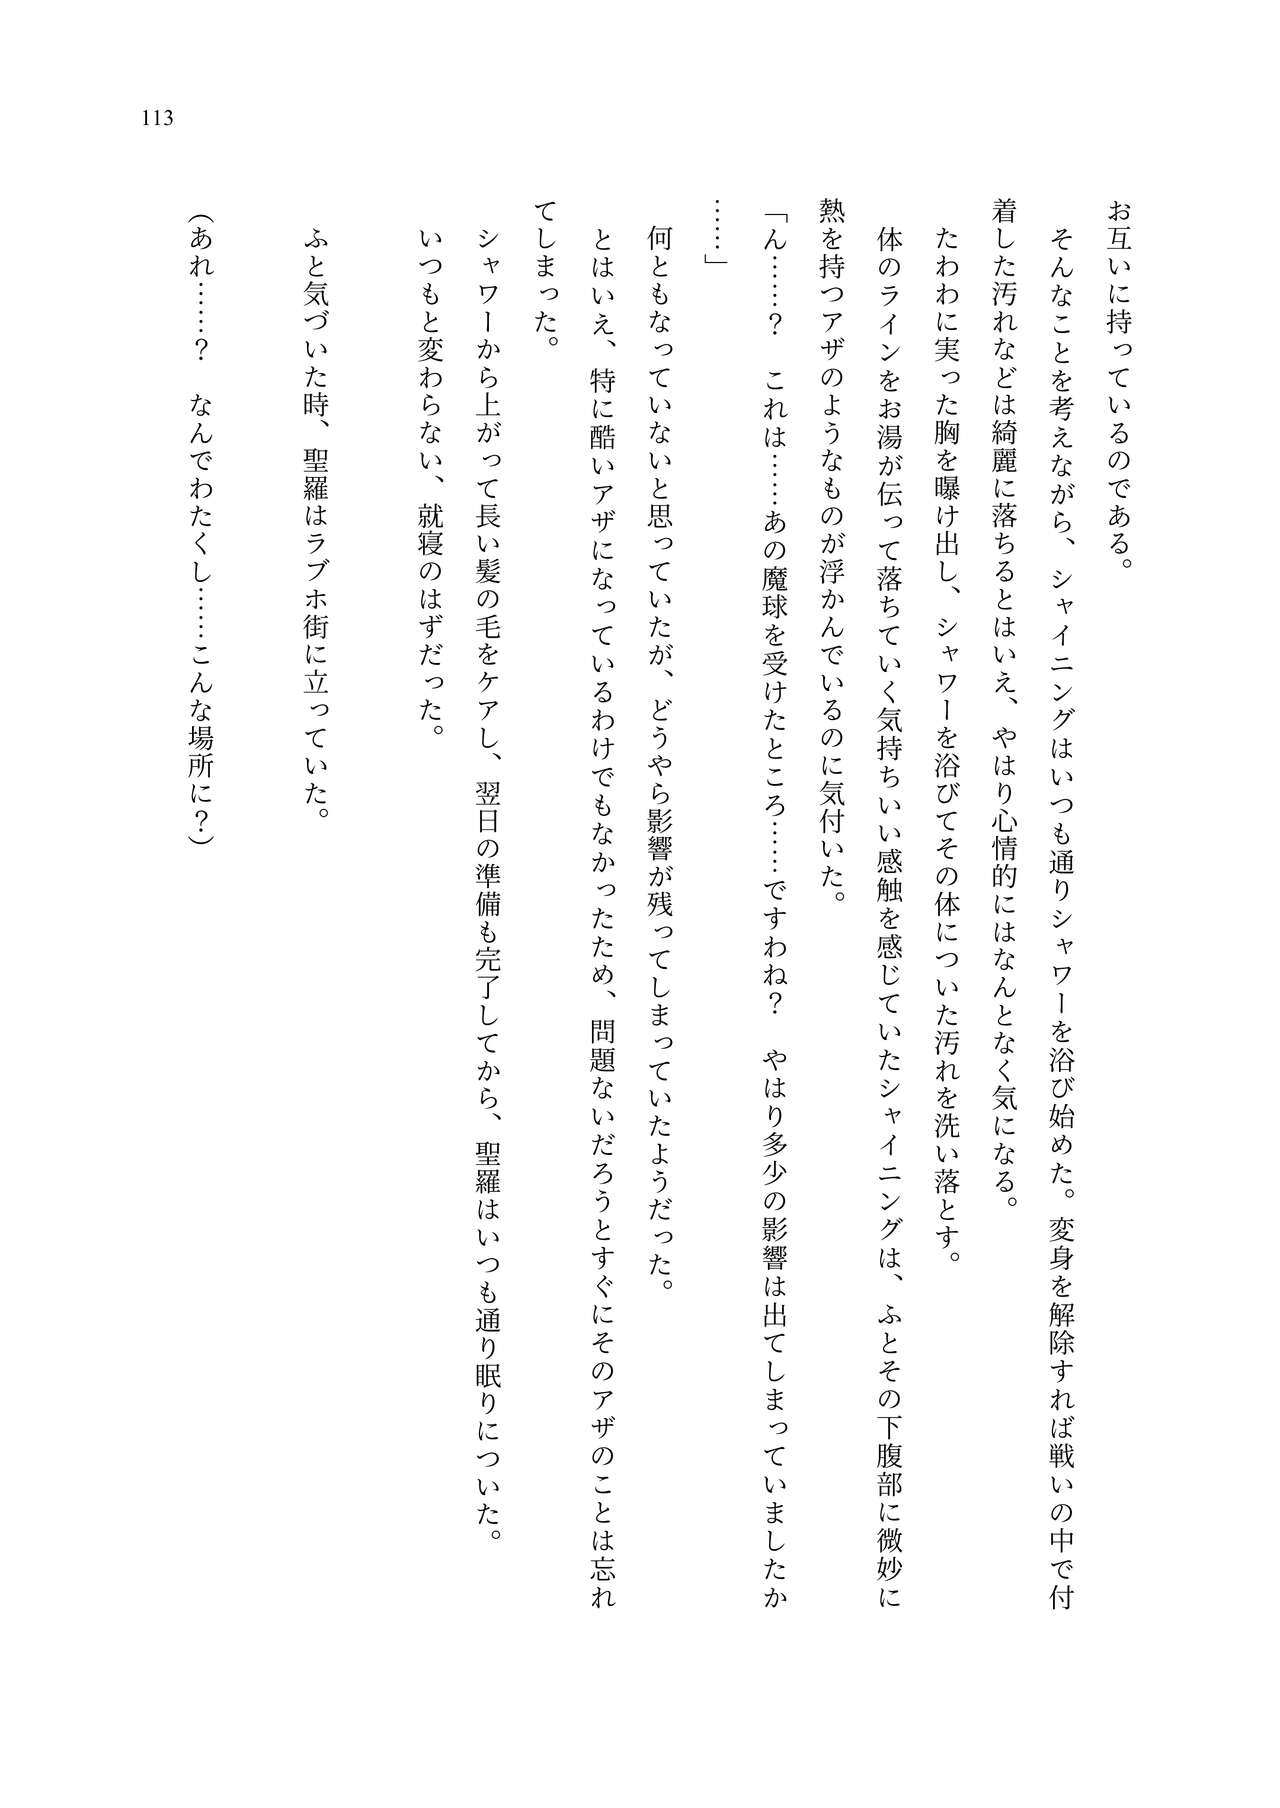 113
お互いに持っているのである。
そんなことを考えながら、シャイニングはいつも通りシャワーを浴び始めた。変身を解除すれば戦いの中で付
着した汚れなどは綺麗に落ちるとはいえ、やはり心情的にはなんとなく気になる。
たわわに実った胸を曝け出し、シャワーを浴びてその体についた汚れを洗い落とす。
体のラインをお湯が伝って落ちていく気持ちいい感触を感じていたシャイニングは、ふとその下腹部に微妙に
熱を持つアザのようなものが浮かんでいるのに気付いた。
「ん……？　これは……あの魔球を受けたところ……ですわね？　やはり多少の影響は出てしまっていましたか
……」
何ともなっていないと思っていたが、どうやら影響が残ってしまっていたようだった。
とはいえ、特に酷いアザになっているわけでもなかったため、問題ないだろうとすぐにそのアザのことは忘れ
てしまった。
シャワーから上がって長い髪の毛をケアし、翌日の準備も完了してから、聖羅はいつも通り眠りについた。
いつもと変わらない、就寝のはずだった。
ふと気づいた時、聖羅はラブホ街に立っていた。
（あれ……？　なんでわたくし……こんな場所に？）